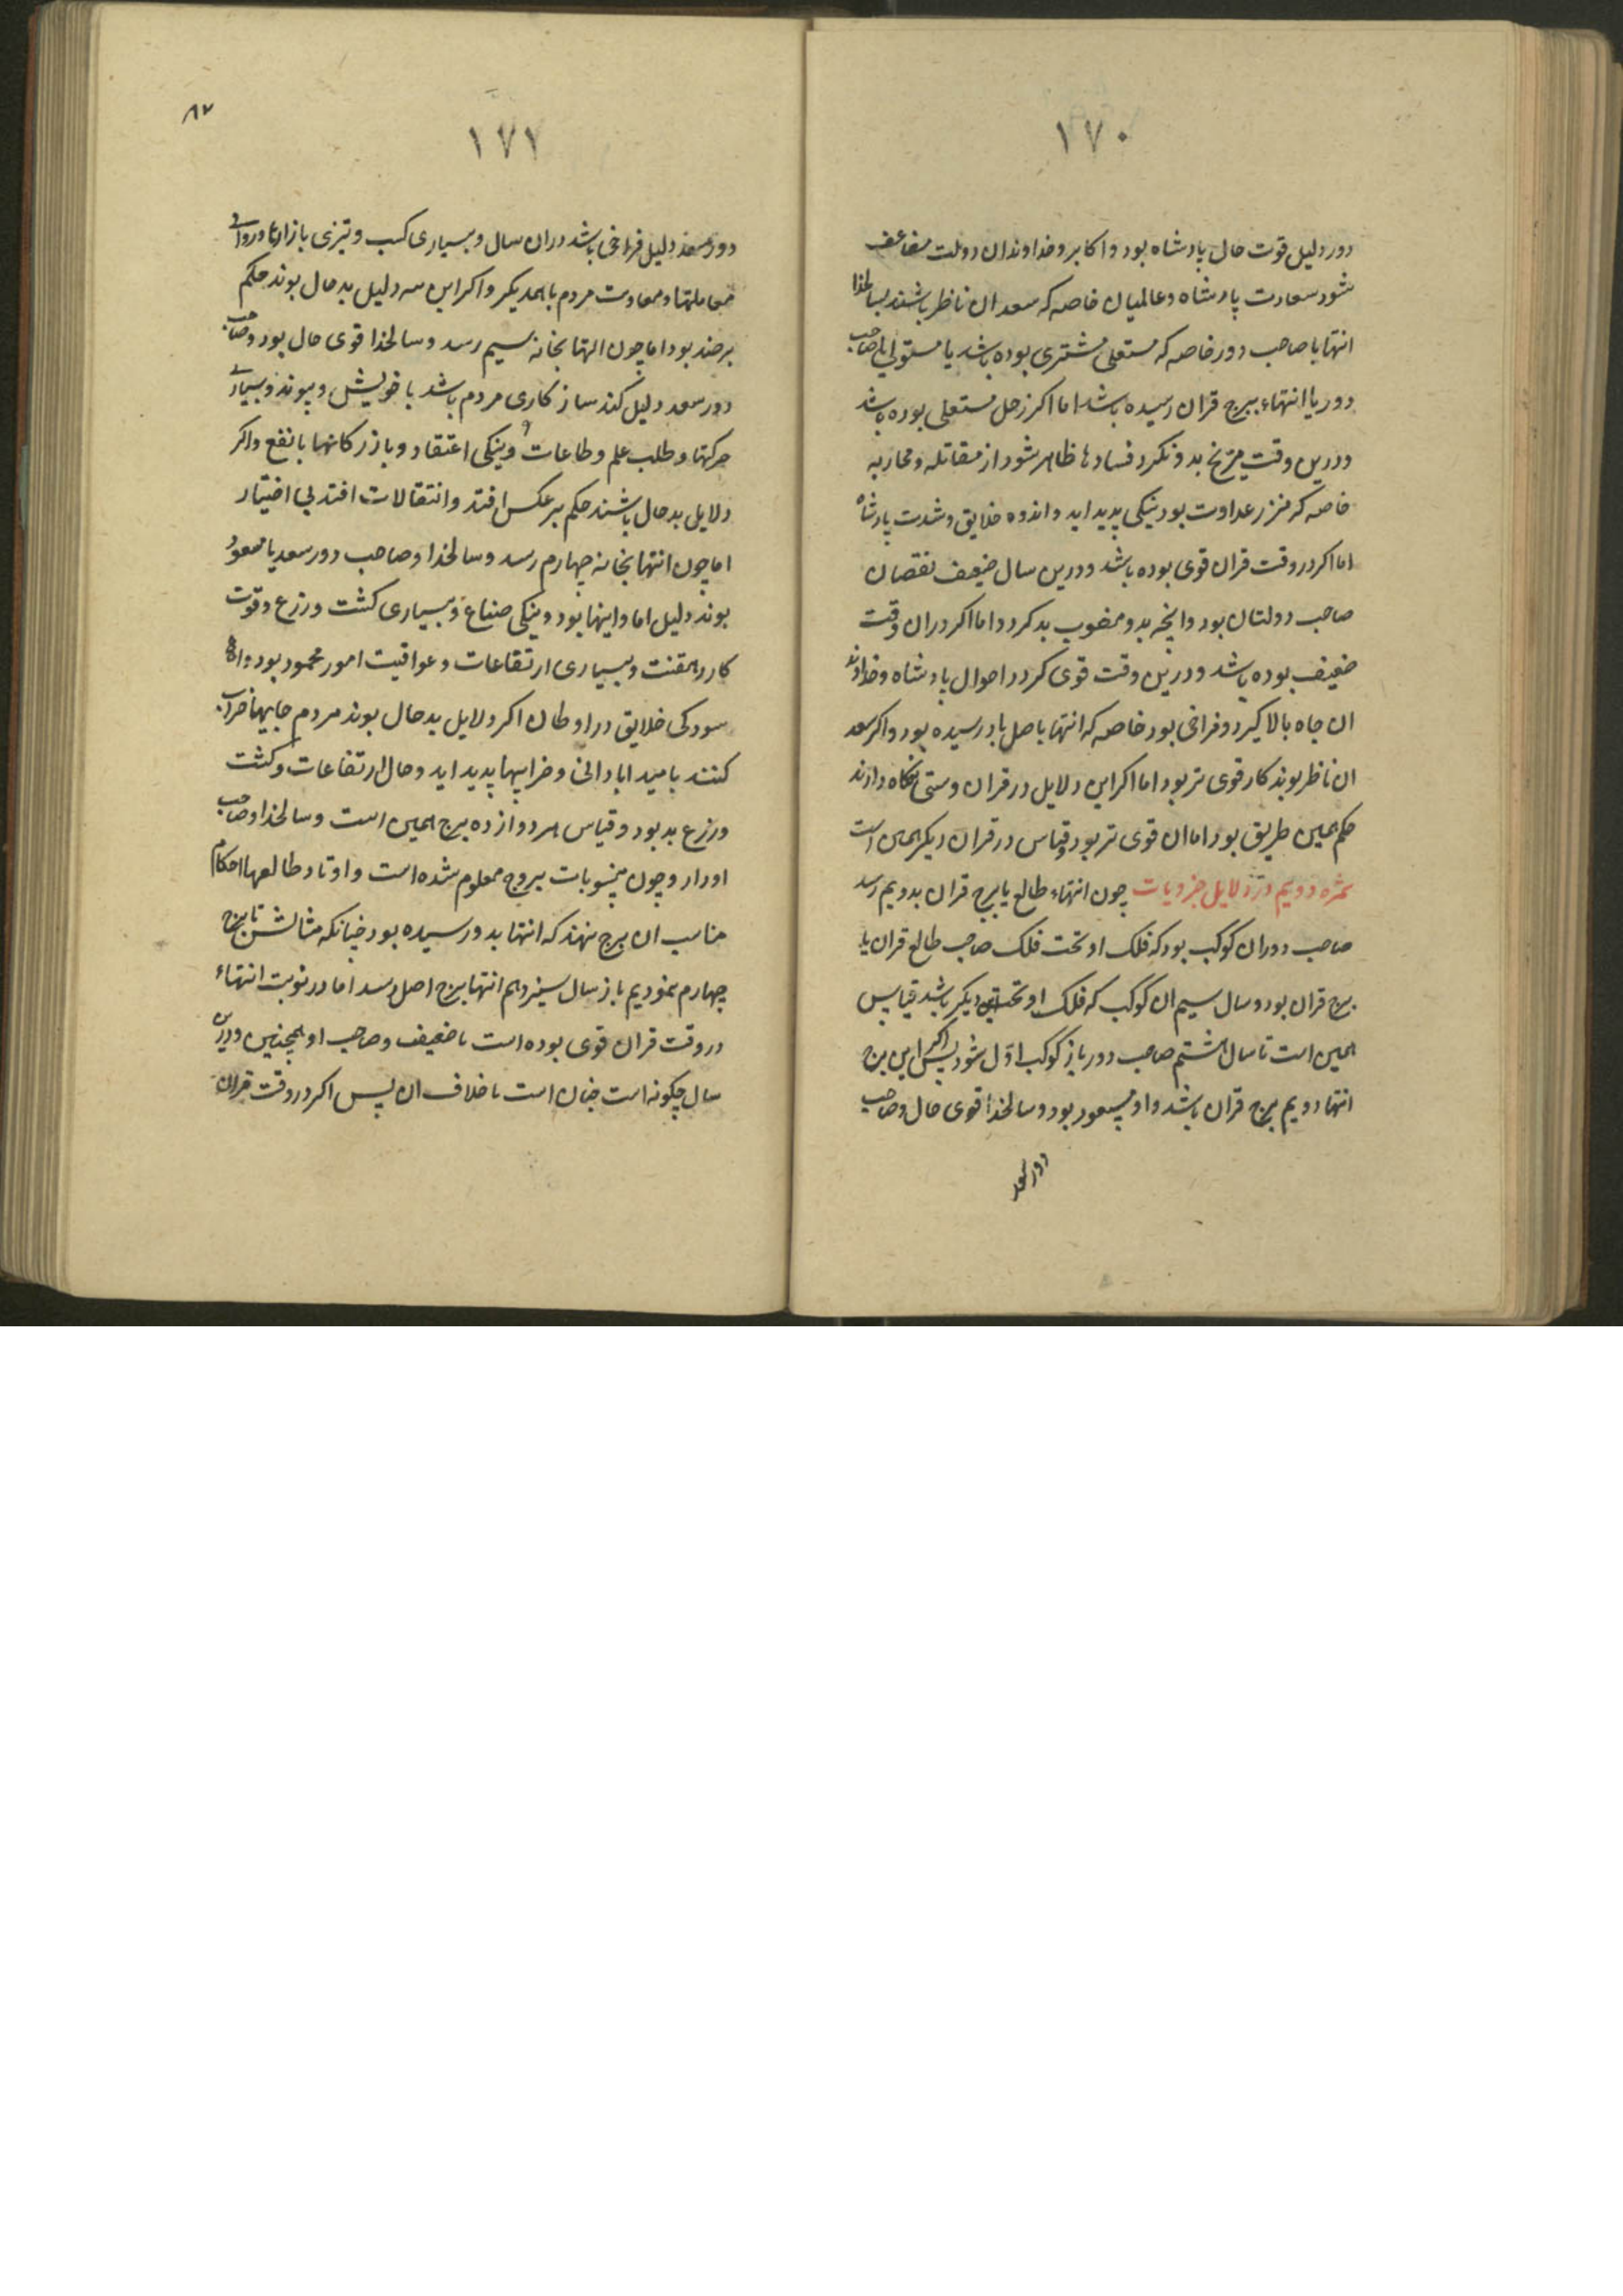 ۱۷۰
دور دلیل قوت حال پادشاه بود و اکابر و خداوندان دولت مضاعف
شود سعادت پادشاه و عالمیان خاصه که سعد ان ناظر باشند بسالخدا
انتها با صاحب دور خاصه که مستعلی مشتری بوده باشد یا مستولی یا صاحب
دور یا انتهاء ببرج قران رسیده باشد اما اکر زحل مستعلی بوده باشد
ودرین وقت مریخ بدو نکرد فسادها ظاهر شود از مقاتله و محاربه
خاصه که عداوت بود نیکی پدید اید و اندوه خلایق و شدت پادشاه
اما اکر در وقت قران قوی بوده باشد و درین سال ضعیف نقصان
صاحب دولتان بود و انچه بدو منسوب بد کردد اما اکر در ان وقت
ضعیف بوده باشد و درین وقت قوی کردد احوال پادشاه و خداوند
ان جاه بالا کیرد و فراخی بود خاصه که انتها باصل باد رسیده بود و اکر سعد
ان ناظر بوند کار قوی تر بود اما اکر این دلایل در قران وستی نکاه دارند
حکم همین طریق بود اما ان قوی تر بود و قیاس در قران دیکر همین است
ثمره دویم در دلایل جزویات چون انتهاء طالع یا برج قران بدویم رسد
صاحب دور ان کوکب بود که فلک او تحت فلک صاحب طالع قران یا
برج قران بود و سال سیم ان کوکب که فلک او تحت این دیکر باشد قیاس
همین است تا سال هشتم صاحب دور باز کوکب اوّل شود پس اکر این برج
انتها دویم برج قران باشد و او مسعود بود و سالخدا قوی حال و صاحب
دور سعد
۸۷
۱۷۱
دور سعد دلیل فراخی باشد در ان سال و بسیاری کسب و تیزی بازارها و روایی
معاملتها و معاونت مردم با همدیکر و اکر این سه دلیل بد حال بوند حکم
بر ضد بود اما چون انتها بخانه سیم رسد و سالخدا قوی حال بود و صاحب
دور سعد دلیل کند ساز کاری مردم باشد با خویش و پیوند و بسیاری
حرکتها و طلب علم و طاعات و نیکی اعتقاد و بازرکانیها با نفع و اکر
دلایل بد حال باشند حکم بر عکس افتد و انتقالات افتد بی اختیار
اما چون انتها بخانه چهارم رسد و سالخدا و صاحب دور سعد یا مسعود
بوند دلیل بود و نیکی صناع و بسیاری کشت و زرع و قوت
کار و بسیاری ارتفاعات و عواقبت امور محمود بود و
سودکی خلایق در اوطان اکر دلایل بد حال بوند مردم جایها خراب
کنند بامید ابادانی و خرابیها پدید اید و حال ارتفاعات و کشت
و زرع بد بود و قیاس هر دوازده برج همین است و سالخدا و صاحب
ادوار و چون منسوبات بروج معلوم شده است و اوتاد طالعها احکام
مناسب ان برج نهند که انتها بدو رسیده بود چنانکه مثالش تا برج
چهارم نمودیم باز سال سیزدهم انتها ببرج اصل رسد اما در نوبت انتهاء
در وقت قران قوی بوده است یا ضعیف و صاحب او همچنین و درین
سال چکونه است چنان است یا خلاف ان پس اکر در وقت قران